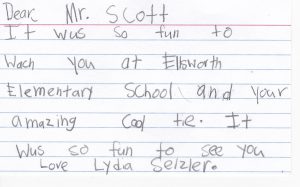 Dear, Mr. Scott
It wus so fun to
Wach you at Ellsworth
Elementary School and your
amazing Cool tie. It
Wus so fun to see you
Love Lydia Selzler.